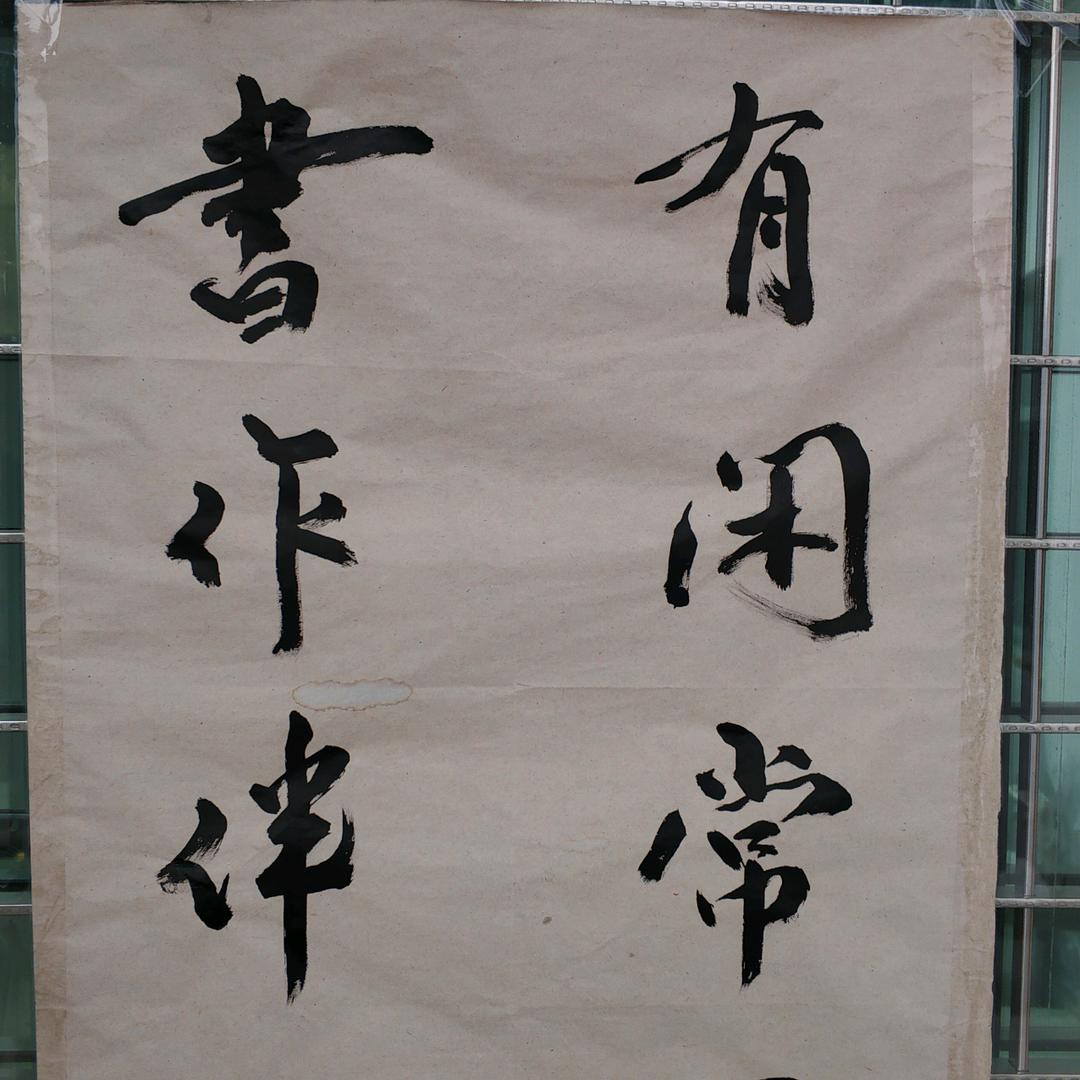 有闲常
書作伴